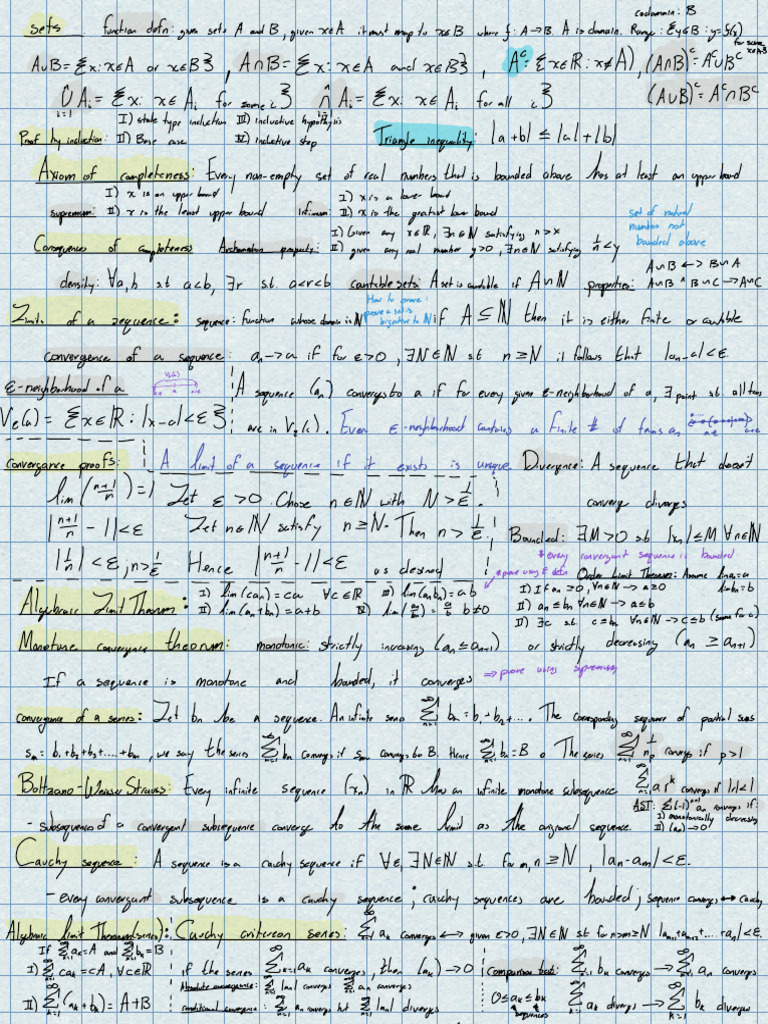 codomain: B
sets function defn: given sets A and B, given x∈A it must map to x∈B where f: A→B. A is domain. Range: {y∈B: y=f(x) for some x∈A}
A∪B={x: x∈A or x∈B}, A∩B={x: x∈A and x∈B}, A^c={x∈ℝ: x∉A}, (A∩B)^c=A^c∪B^c
∪_{i=1}^∞ A_i={x: x∈A_i for some i} ∩_{i=1}^∞ A_i={x: x∈A_i for all i} (A∪B)^c=A^c∩B^c
Proof by induction: I) state type induction II) Base case III) inductive hypothesis IV) inductive step
Triangle inequality: |a+b| ≤ |a|+|b|
Axiom of completeness: Every non-empty set of real numbers that is bounded above has at least an upper bound
supremum: I) x is an upper bound II) x is the least upper bound
infimum: I) x is a lower bound II) x is the greatest lower bound
Consequences of completeness Archimedean property: I) Given any x∈ℝ, ∃n∈ℕ satisfying n>x
II) given any real number y>0, ∃n∈ℕ satisfying 1/n<y
set of natural numbers not bounded above
density: ∀a,b st a<b, ∃r s.t. a<r<b countable sets: A set is countable if A∩ℕ properties: A∩B <-> B∩A
A∩B ^ B∩C -> A∩C
Limits of a sequence: sequence: function whose domain is ℕ
How to prove: prove a set is bijective to ℕ
if A⊆ℕ then it is either finite or countable
convergence of a sequence: a_n→a if for ε>0, ∃N∈ℕ s.t n≥N it follows that |a_n-a|<ε.
ε-neighborhood of a
V_ε(a)={x∈ℝ: |x-a|<ε}
A sequence (a_n) converges to a if for every given ε-neighborhood of a, ∃ point st. all terms
are in V_ε(a). Every ε-neighborhood contains a finite # of terms a_n
convergence proofs: A limit of a sequence if it exists is unique. Divergence: A sequence that doesn't
converge diverges
lim((n+1)/n)=1 Let ε>0. Chose n∈ℕ with N>1/ε.
|(n+1)/n - 1|<ε Let n∈ℕ satisfy n≥N. Then n>1/ε.
|1/n|<ε, n>1/ε Hence |(n+1)/n - 1|<ε as desired
Bounded: ∃M>0 s.t |x_n|≤M ∀n∈ℕ
*every convergent sequence is bounded
Algebraic Limit Theorem: I) lim(ca_n)=ca ∀c∈ℝ II) lim(a_n+b_n)=a+b III) lim(a_nb_n)=ab IV) lim(a_n/b_n)=a/b b≠0
*prove using ε defn
Order Limit Theorem: Assume lim a_n=a lim b_n=b
I) If a_n≥0, ∀n∈ℕ -> a≥0
II) a_n≤b_n ∀n∈ℕ -> a≤b
II) ∃c s.t. c≤b_n ∀n∈ℕ -> c≤b (same for c)
Monotone convergence theorem: monotonic: strictly increasing (a_n≤a_{n+1}) or strictly decreasing (a_n≥a_{n+1})
If a sequence is monotone and bounded, it converges => prove using supremum
convergence of a series: Let b_n be a sequence. An infinite series ∑_{n=1}^∞ b_n=b_1+b_2+.... The corresponding sequence of partial sums
s_m=b_1+b_2+b_3+....+b_m, we say the series ∑_{n=1}^∞ b_n converges if s_m converges to B. Hence ∑_{n=1}^∞ b_n=B o The series ∑_{n=1}^∞ 1/n^p converges if p>1
Boltzano-Weiser Strauss: Every infinite sequence (x_n) in ℝ has an infinite monotone subsequence ∑_{n=1}^∞ ar^k converges if |r|<1
-Subsequences of a convergent subsequence converge to the same limit as the original sequence.
AST: ∑(-1)^{n+1} a_n converges if:
I) monotonically decreasing
II) (a_n)→0
Cauchy sequence: A sequence is a cauchy sequence if ∀ε, ∃N∈ℕ s.t. for m,n≥N, |a_n-a_m|<ε.
- every convergent subsequence is a cauchy sequence; cauchy sequences are bounded; sequence converges <-> cauchy
Algebraic limit Theorem (series): If ∑a_k=A and ∑b_k=B
I) ∑ca_k=cA, ∀c∈ℝ
II) ∑(a_k+b_k)=A+B
Cauchy criterion series: ∑_{k=1}^∞ a_k converges <-> given ε>0, ∃N∈ℕ s.t for n>m≥N |a_{m+1}+a_{m+2}+....+a_n|<ε.
if the series ∑_{k=1}^∞ a_k converges, then (a_k)→0
Absolute convergence: ∑|a_n| converges ∑a_n converges
conditional convergence: ∑a_n converges but ∑|a_n| diverges
comparison test: 0≤a_k≤b_k
sequences
∑_{k=1}^∞ b_k converges -> ∑_{k=1}^∞ a_n converges
∑_{k=1}^∞ a_k diverges -> ∑_{k=1}^∞ b_k diverges